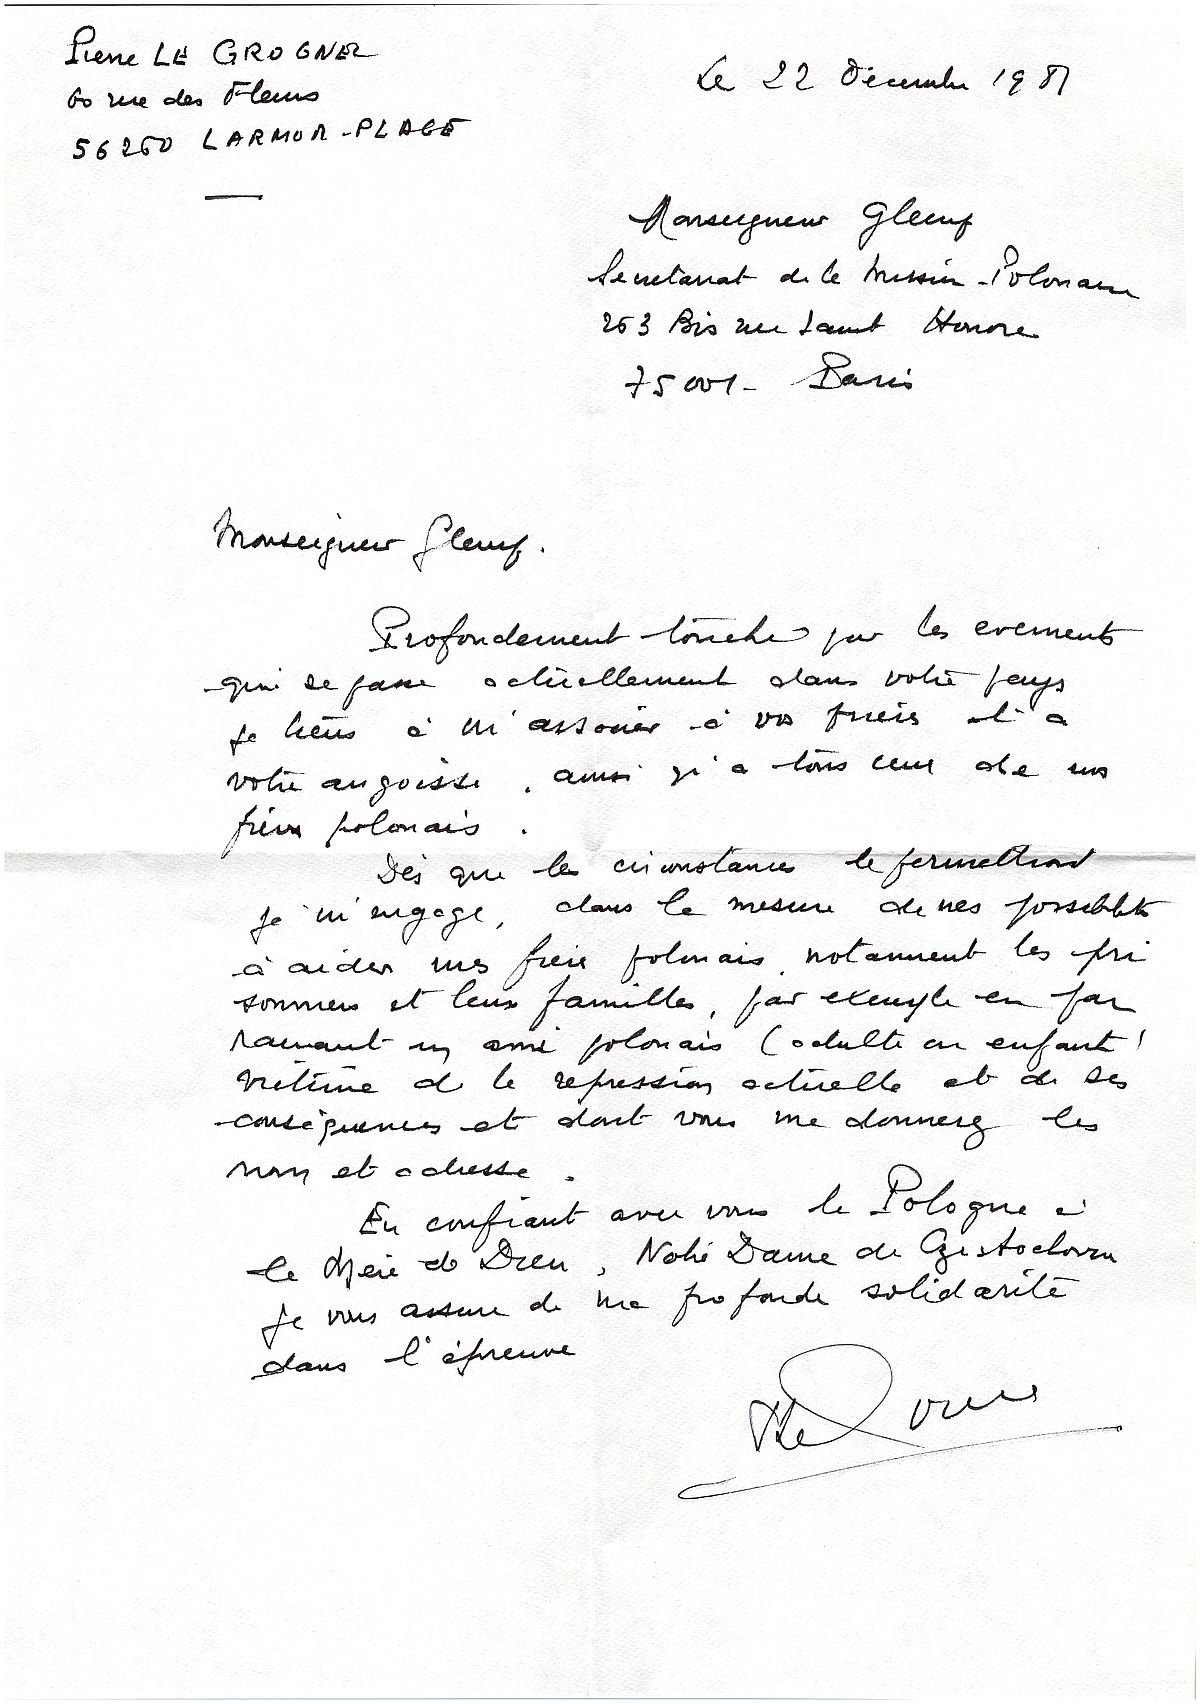 Pierre LE GROGNEC
60 rue des Fleurs
56260 LARMOR-PLAGE
Le 22 Décembre 1981
Monseigneur Glemp
Secretariat de la Mission Polonaise
263 Bis rue Saint Honore
75001 - Paris
Monseigneur Glemp.
Profondement touché par les evements
qui se passe actuellement dans votre pays
je tiens à m'associer à vos prières et à
votre angoisse, ainsi qu'a tous ceux de nos
frères polonais.
Dès que les circonstances le permettront
je m'engage, dans la mesure de mes possibilités
à aider mes frères polonais, notamment les pri
sonniers et leurs familles, par exemple en par
rainant un ami polonais (adulte ou enfant)
victime de la repression actuelle et de ses
conséquences et dont vous me donnerez les
nom et adresse.
En confiant avec vous la Pologne à
la Mère de Dieu, Notre Dame de Czestochowa
je vous assure de ma profonde solidarité
dans l'épreuve